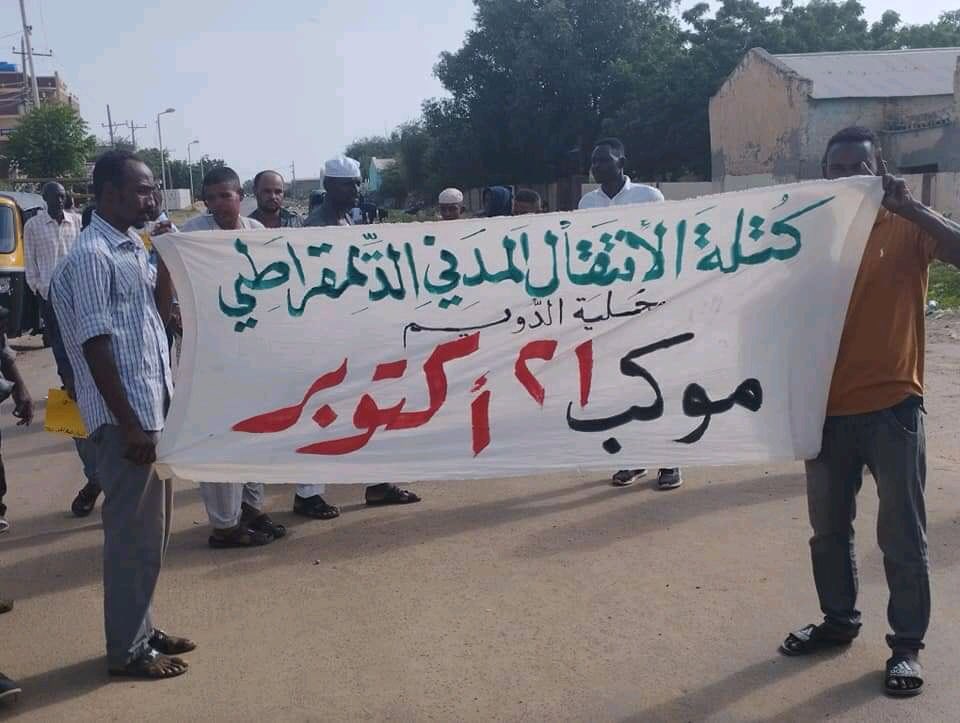 كتلة الانتقال المدني الدّيمقراطي
محلية الدّويم
موكب ٢١ أكتوبر